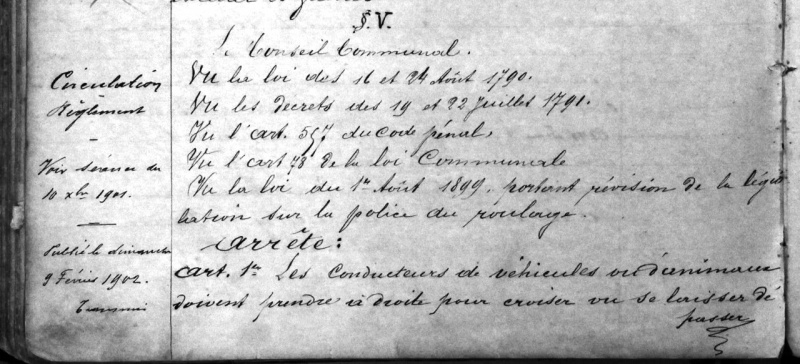 §.V.
Le Conseil Communal.
Vu la loi des 16 et 24 Août 1790.
Vu les decrets des 19 et 22 Juillet 1791.
Vu l'art. 557 du code pénal,
Vu l'art 78 de la loi Communale
Vu la loi du 1er Août 1899. portant révision de la légis
lation sur la police du roulage.
arrête:
art. 1er Les conducteurs de véhicules ou d'animaux
doivent prendre à droite pour croiser ou se laisser dé
passer
Circulation
Règlement
Voir séance du
10 xbre 1901.
Publié le dimanche
9 Févrie 1902.
Transmis